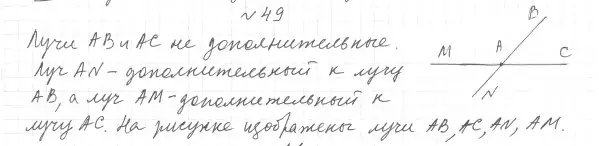 № 49
Лучи AB и AC не дополнительные.
Луч AN - дополнительный к лучу
AB, а луч AM - дополнительный к
лучу AC. На рисунке изображены лучи AB, AC, AN, AM.
B
M A C
N